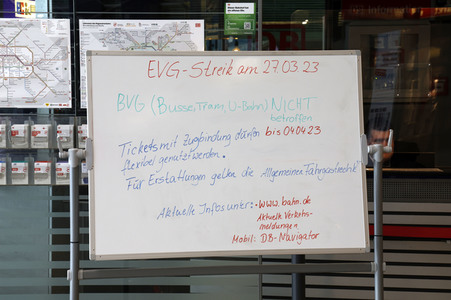 EVG-Streik am 27.03.23
BVG (Busse, Tram, U-Bahn) NICHT
betroffen
Tickets mit Zugbindung dürfen bis 04.04.23
flexibel genutzt werden.
Für Erstattungen gelten die "Allgemeinen Fahrgastrechte"
Aktuelle Infos unter: • www.bahn.de
Aktuelle Verkehrs-
meldungen
Mobil: DB-Navigator